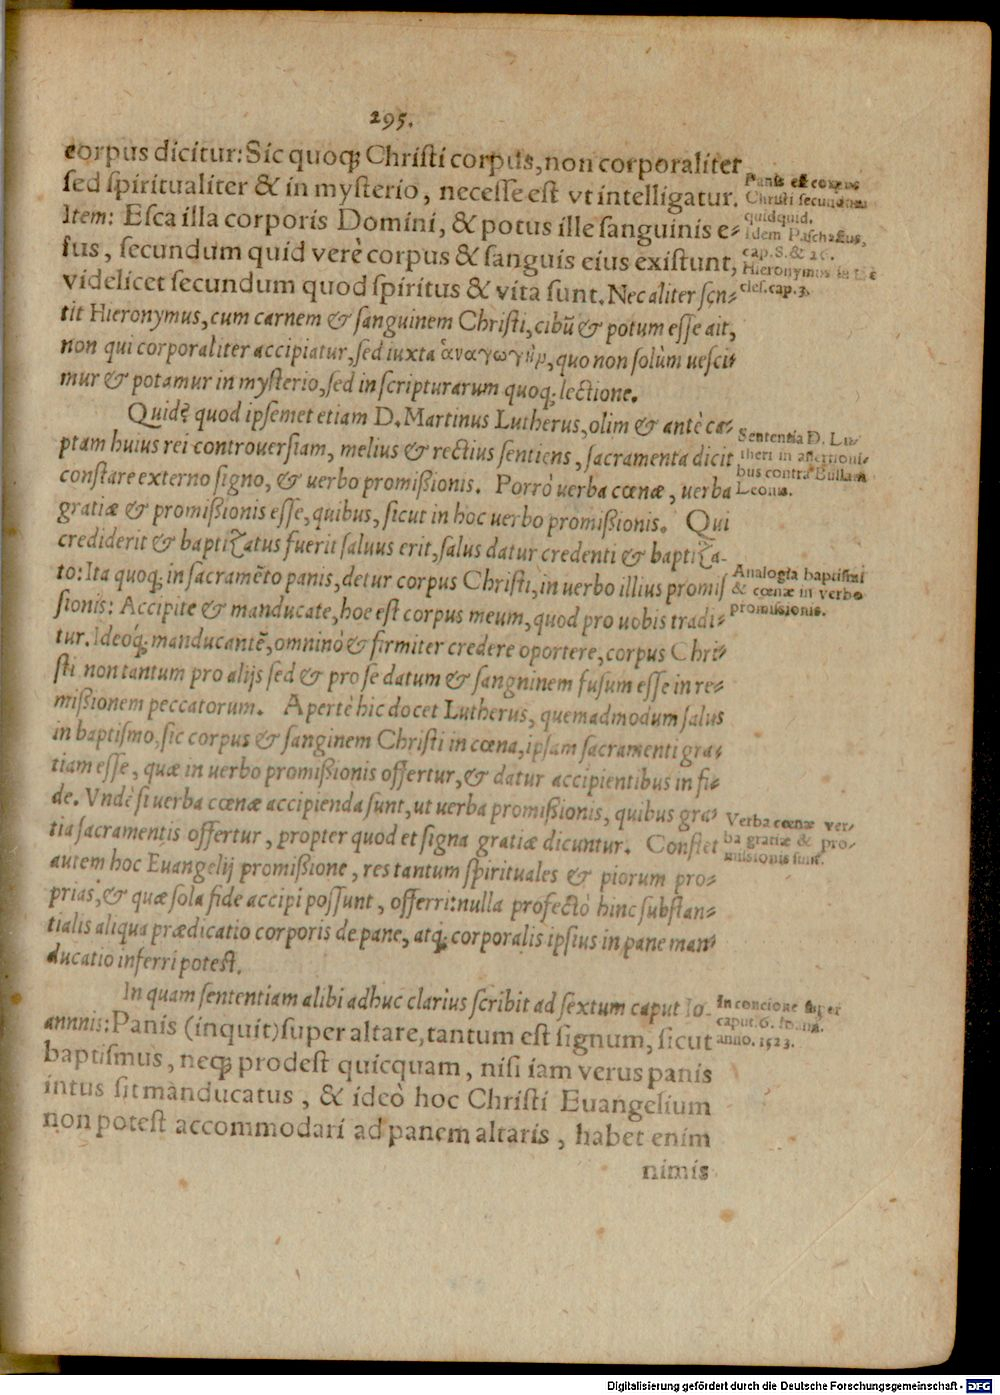 295.
corpus dicitur: Sic quoq; Chriſti corpus, non corporaliter
ſed ſpiritualiter & in myſterio, neceſſe eſt vt intelligatur.
Item: Eſca illa corporis Domini, & potus ille ſanguinis e⸗
ſus, ſecundum quid verè corpus & ſanguis eius exiſtunt,
videlicet ſecundum quod ſpiritus & vita ſunt. Nec aliter ſen⸗
tit Hieronymus, cum carnem & ſanguinem Chriſti, cibũ & potum eſſe ait,
non qui corporaliter accipiatur, ſed iuxta ἀναγωγὴν, quo non ſolùm ueſci⸗
mur & potamur in myſterio, ſed in ſcripturarum quoq; lectione.
Quidẽ quod ipſemet etiam D. Martinus Lutherus, olim & antè cæ⸗
ptam huius rei controuerſiam, melius & rectius ſentiens, ſacramenta dicit
conſtare externo ſigno, & uerbo promißionis. Porrò uerba cœnæ, uerba
gratiæ & promißionis eſſe, quibus, ſicut in hoc uerbo promißionis. Qui
crediderit & baptizatus fuerit ſaluus erit, ſalus datur credenti & baptiza-
to: Ita quoq; in ſacramẽto panis, detur corpus Chriſti, in uerbo illius promiſ
ſionis: Accipite & manducate, hoc eſt corpus meum, quod pro uobis tradi⸗
tur. Ideoq́; manducantẽ, omninò & firmiter credere oportere, corpus Chri⸗
ſti non tantum pro alijs ſed & pro ſe datum & ſangninem fuſum eſſe in re⸗
mißionem peccatorum. Apertè hic docet Lutherus, quemadmodum ſalus
in baptiſmo, ſic corpus & ſanginem Chriſti in cœna, ipſam ſacramenti gra⸗
tiam eſſe, quæ in uerbo promißionis offertur, & datur accipientibus in fi⸗
de. Vndè ſi uerba cœnæ accipienda ſunt, ut uerba promißionis, quibus gra⸗
tia ſacramentis offertur, propter quod et ſigna gratiæ dicuntur. Conſtet
autem hoc Euangelij promißione, res tantum ſpirituales & piorum pro⸗
prias, & quæ ſola fide accipi poſſunt, offerri: nulla profectò hinc ſubſtan⸗
tialis aliqua prædicatio corporis de pane, atq; corporalis ipſius in pane man⸗
ducatio inferri poteſt.
In quam ſententiam alibi adhuc clarius ſcribit ad ſextum caput Io-
annnis: Panis (inquit) ſuper altare, tantum eſt ſignum, ſicut
baptiſmus, neq; prodeſt quicquam, niſi iam verus panis
intus ſit manducatus, & ideò hoc Chriſti Euangelium
non poteſt accommodari ad panem altaris, habet enim
nimis
Panis eſt corpus
Chriſti ſecundum
quidquid.
Idem Paſchaſius,
cap. 8. &
Hieronymus in
cleſ. cap. 3.
Sententia D. Lu⸗
theri in aſſertioni⸗
bus contra Bullam
Leonis.
Analogia baptiſmi
& cœnæ in verbo
promiſſionis.
Verba cœnæ ver⸗
ba gratiæ & pro⸗
miſſionis ſunt.
In concione ſuper
caput. 6. Ioana.
anno. 1523.
Digitalisierung gefördert durch die Deutsche Forschungsgemeinschaft - DFG